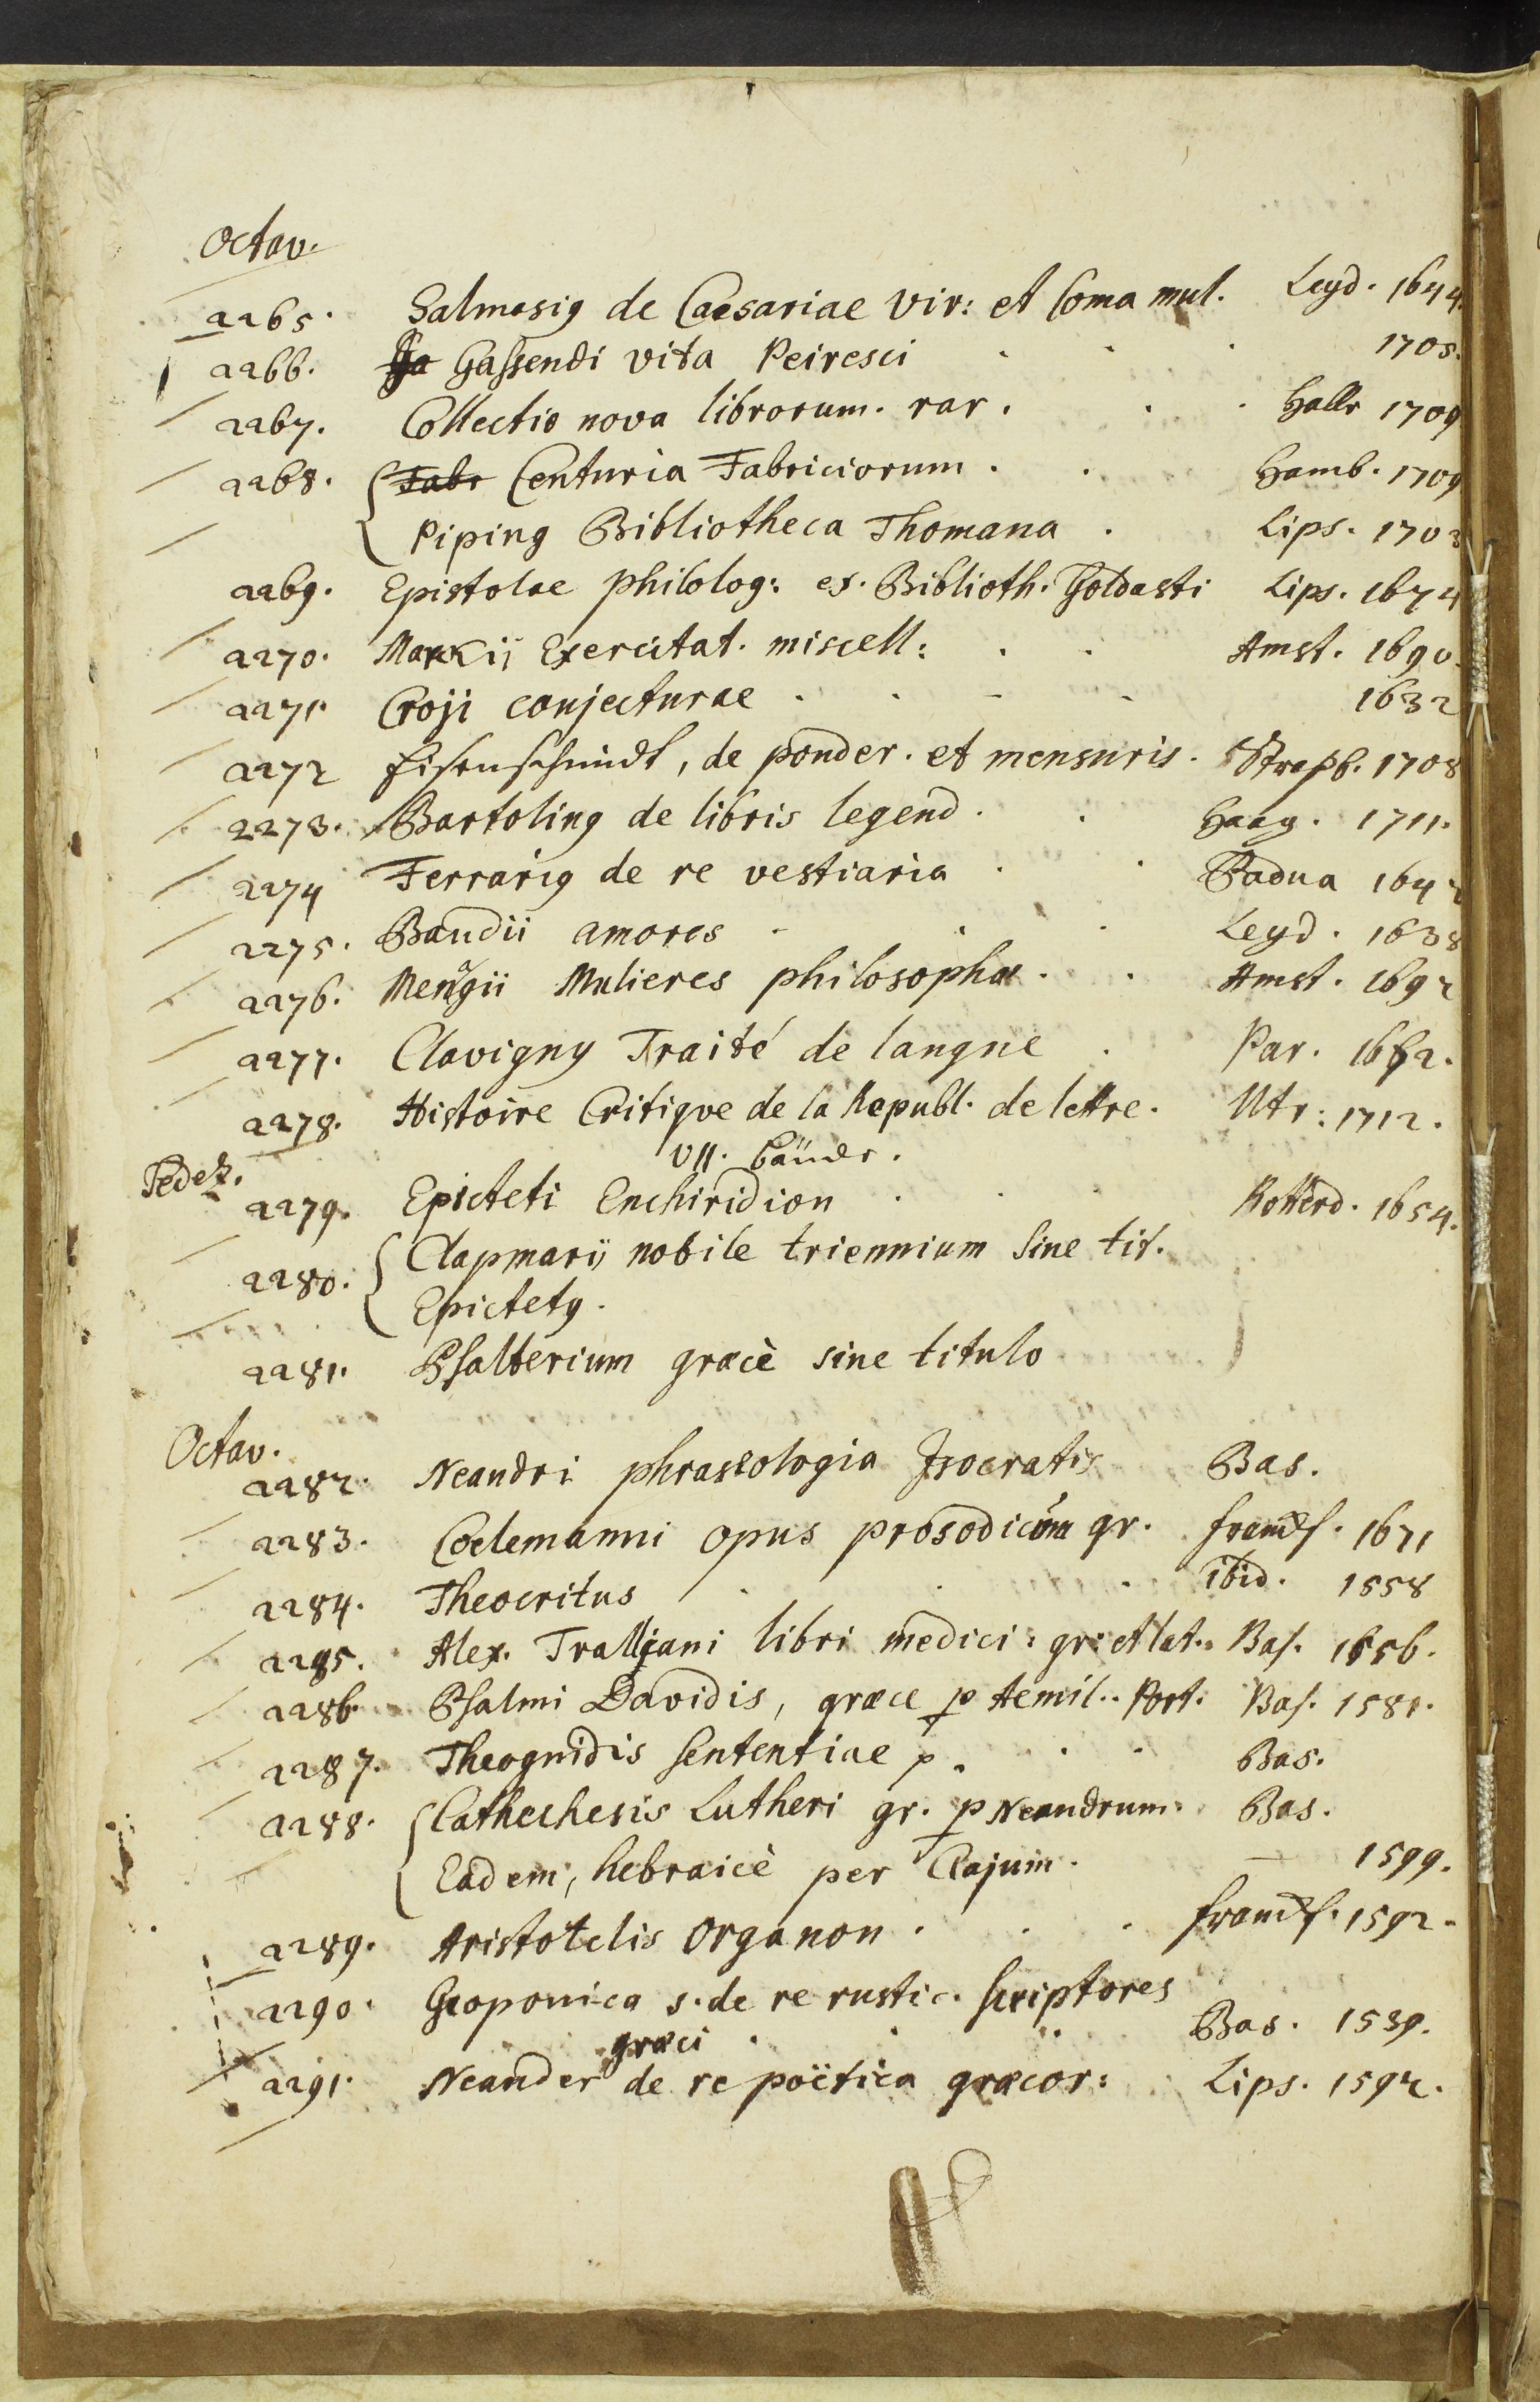 Octav.
2265. Salmasig de Caesariae vir: et Coma mul. Leyd. 1644.
2266. Ga Gassendi vita Peiresci 1705.
2267. Collectio nova librorum. rar. Halle 1709
2268. Fabr Centuria Fabriciorum. Hamb. 1709
Piping Bibliotheca Thomana. Lips. 1703
2269. Epistolae philolog: ex. Biblioth. Goldasti Lips. 1674
2270. Markii Exercitat. miscell: Amst. 1690.
2271. Croji conjecturae 1632
2272 Eisenschmidt, de ponder. et mensuris. Strasb. 1708
2273. Bartoling de libris legend. Haag. 1711.
2274 Ferrarig de re vestiaria Padua 1642
2275. Baudii amores Leyd. 1638
2276. Menagii Mulieres philosophae. Amst. 1692
2277. Clavigny Traité de langue Par. 1672.
2278. Histoire Critique de la Republ. de lettre. Utr: 1712.
VII. bände.
Sedez.
2279. Epicteti Enchiridion Rotterd. 1654.
2280. Clapmarij nobile triennium sine tit.
Epictetg.
2281. Psalterium graecè sine titulo
Octav.
2282. Neandri phraseologia Isocratis Bas.
2283. Coelemanni opus prosodicum gr. francf. 1671
2284. Theocritus ibid. 1558
2285. Alex. Tralliani libri medici: gr: et lat. Bas. 1556.
2286. Psalmi Davidis, graece p Aemil. Port. Bas. 1581.
2287. Theognidis sententiae p. Bas.
2288. Cathechesis Lutheri gr. p Neandrum. Bas.
Eadem, hebraicè per Clajum. — 1599.
2289. Aristotelis Organon. francf. 1592.
2290. Geoponica s. de re rustic. scriptores
graeci Bas. 1539.
2291. Neander de re poëtica graecor: Lips. 1592.